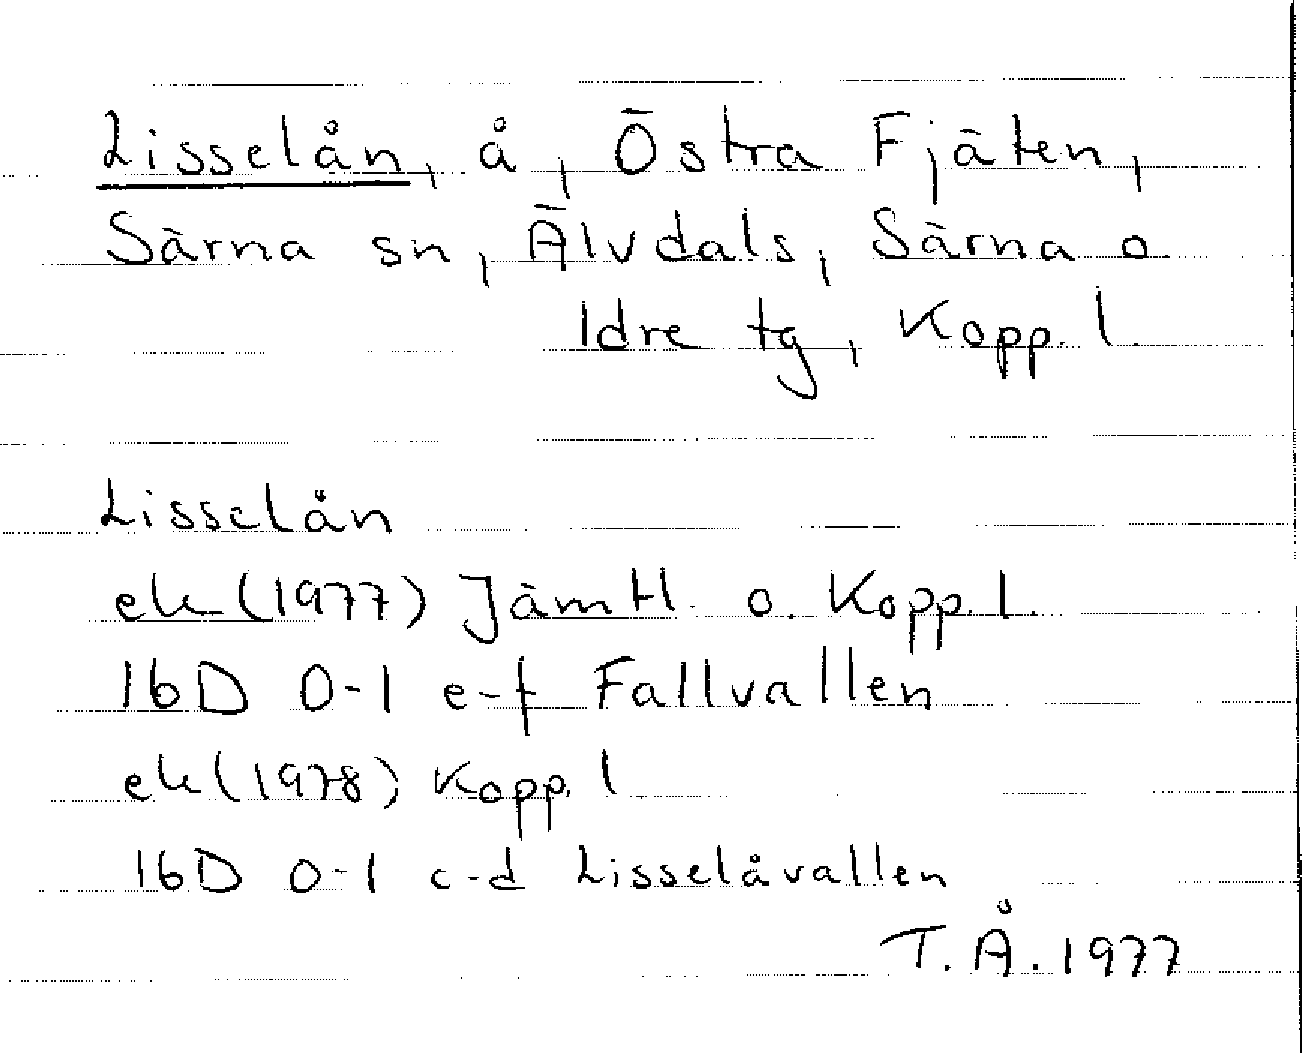 Lisselån, å, Östra Fjäten,
Särna sn, Älvdals, Särna o
Idre tg, Kopp. l.
Lisselån
ek (1977) Jämtl. o. Kopp. l.
16D 0-1 e-f Fallvallen
ek (1978) Kopp. l
16D 0-1 c-d Lisselåvallen
T. Å. 1977